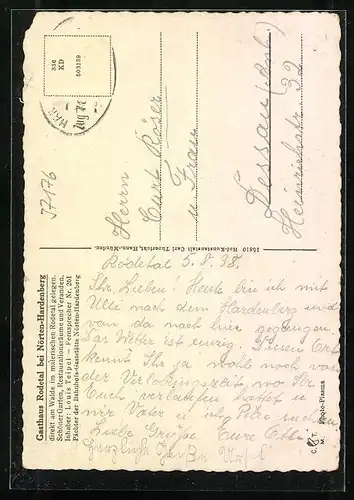 Gasthaus Rodetal bei Nörten-Hardenberg
direkt am Walde im malerischen Rodetal gelegen.
Schöner Garten, Restaurationsräume und Veranden.
Inhaber: Louis Teipel — Fernsprecher Nr. 201
Pächter der Bahnhofs-Gaststätte Nörten-Hardenberg
Rodetal 5.8.38.
Ihr Lieben! Heute bin ich mit
Ulli nach dem Hardenberg und
von da nach hier gegangen.
Das Wetter ist einzig. Diesen Ort
kennt Ihr ja wohl noch von
der Verlobungszeit, wo Ihr
Euch verlaufen hattet u.
wir Vater u. ich Pilze suchten
Liebe Grüße Eure
Herzliche
15610 Hof-Kunstanstalt Carl Thoericht, Hann.-Münden.
C. T. M.
Photo-Pisana
336
KD
503139
Zug
J7176
Herrn
Curt Röser
u. Frau
Dessau (Anh)
Heinrichstr 32